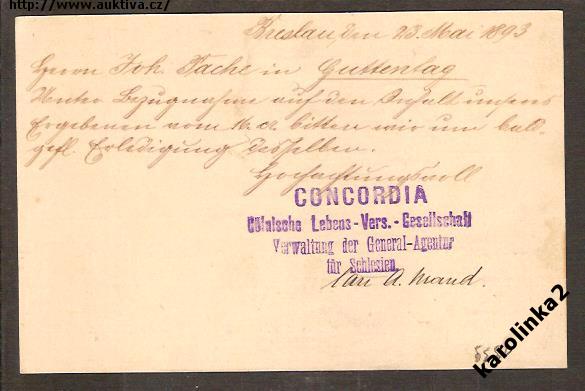 http://www.auktiva.cz/
Breslau, den 23. Mai 1893
Herrn Joh. Pache in Guttentag
Unter Bezugnahme auf den Inhalt unseres
Ergebenen vom 16. cr. bitten wir um bald-
gefl. Erledigung desselben.
Hochachtungsvoll
CONCORDIA
Cölnische Lebens-Vers.-Gesellschaft
Verwaltung der General-Agentur
für Schlesien
Carl A. Mand.
karolinka2